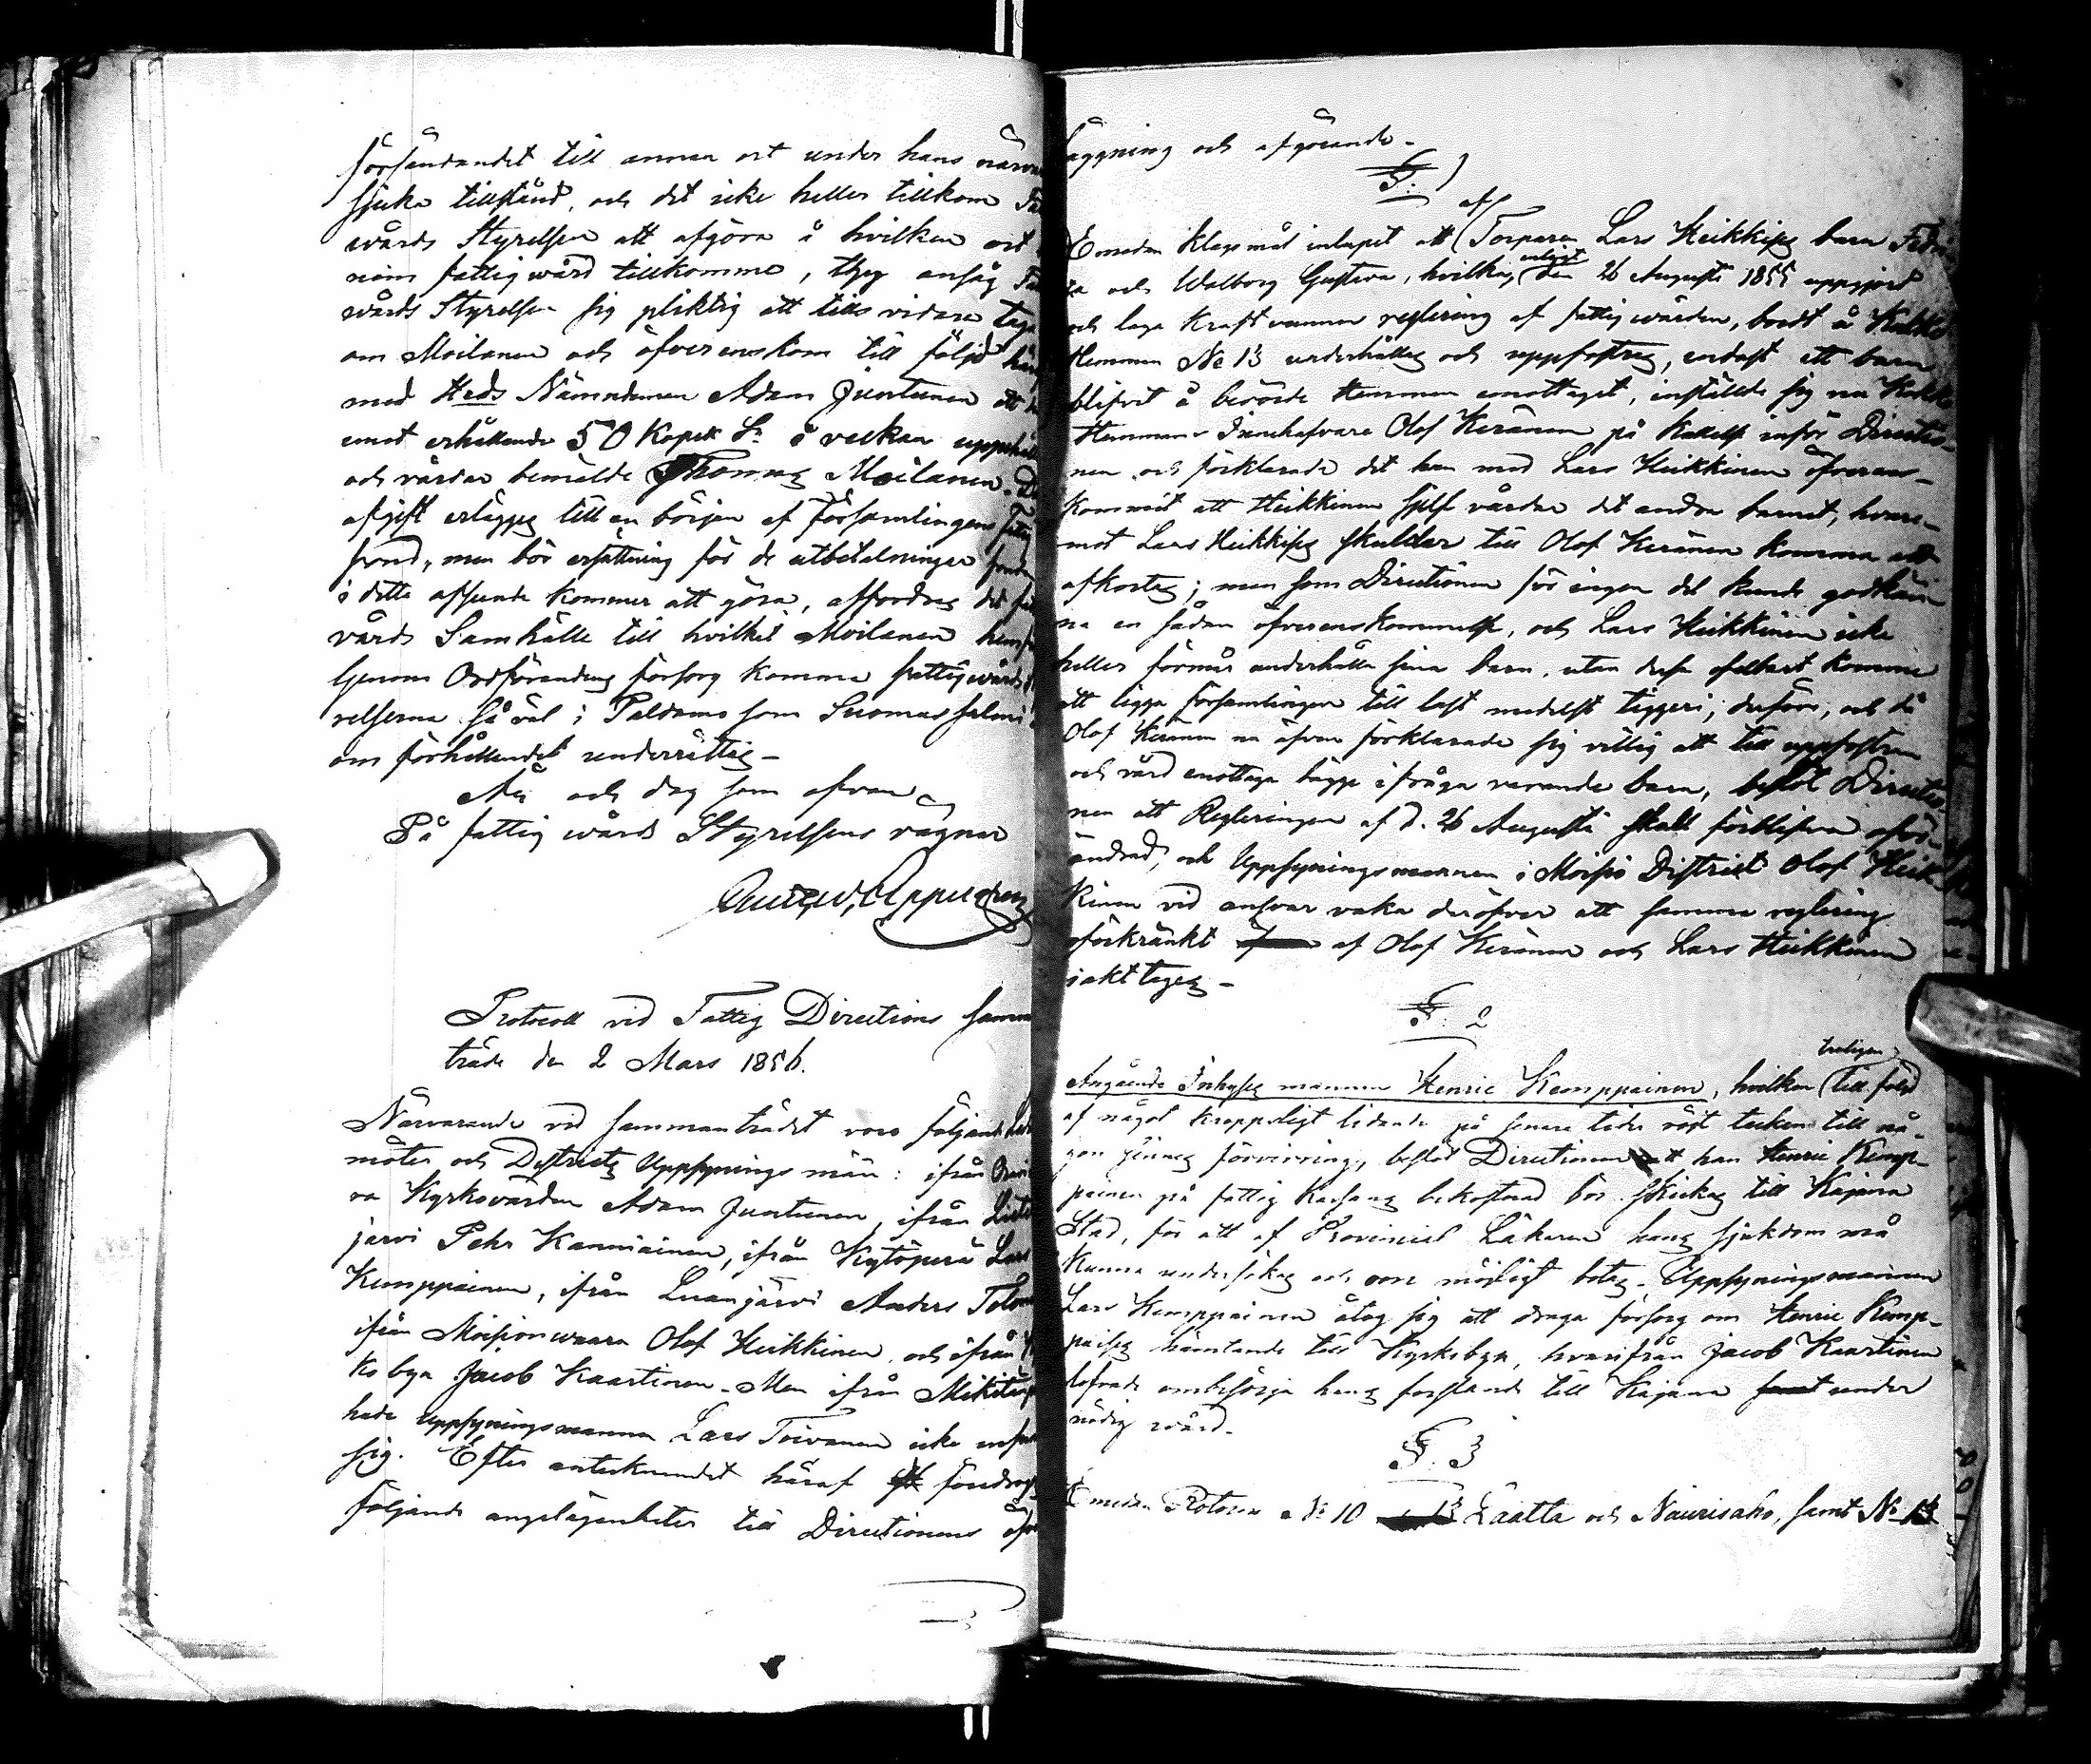 försändandet till annan ort under hans närva
sjuka tillstånd, och det icke heller tillkom Fa
wårds Styrelsen att afgöra å hvilken ort
nom fattigwård tillkomme, thy ansåg Fa
wårds Styrelsen sig pliktig att tills vidare taga
om Moilanen och öfverenskom till följd häraf
med Hrds Nämndeman Adam Juntunen att
emot erhållande 50 Kopek Sr i veckan uppehålla
och vårdar bemälde Thomas Moilanen. De
afgift erlägges till en början af Församlingens fattig
fond, men bör ersättning för de utbetalningar fonden
i detta afseende kommer att göra, affordras det fat
vårds Samhälle till hvilket Moilanen
Genom Ordförandens försorg komma fattigwårdssty
relserna så väl i Paldamo som Suomussalmi
om förhållandet underrättas.
År och dag som ofvan
På fattigwårds Styrelsens vägnar
Protocoll vid Fattig Directions samman
träde den 2 Mars 1856.
Närvarande vid sammanträdet voro följande Leda
möter och Districts Uppsyningsmän: ifrån
ra Kyrkovärden Adam Juntunen, ifrån
jarvi Pehr Kanniainen, ifrån Kytöperä Lars
Kemppainen, ifrån Luanjärvi Anders Tolon
ifrån Moisionwaara Olof Heikkinen, och ifrån Kyr
kobyn Jacob Kaartinen. Men ifrån
hade Uppsyningsmannen Lars Toivanen icke infun
sig. Efter antecknandet häraf föredrogs
följande angelägenheter till Directionens öfver
läggning och afgörande.
§. 1
Emedan klagomål inlupit att af Torparen Lars Heikkises barn Fedri
ka och Walborg Gustava, hvilka, enligt den 26 Augusti 1855 uppgjord
och laga kraft vunnen reglering af fattigwården, bordt å
Hemman No 13 underhållas och uppfostras, endast ett barn
blifvit å berörde Hemman emottaget, inställde sig nu
Hemmans Innehafvare Olof Keränen på kallelse inför Directio-
nen och förklarade det han med Lars Heikkinen öfverens-
kommit att Heikkinen sjelf vårdar det andra barnet, hvare-
mot Lars Heikkises skulder till Olof Keränen komma att
afkortas; men som Directionen för ingen del kunde godkän-
na en sådan öfverenskommelse, och Lars Heikkinen icke
heller förmår underhålla sina barn, utan dessa ofelbart komme
att ligga församlingen till last medelst tiggeri; derföre, och då
Olof Keränen nu äfven förklarade sig villig att till uppfostran
och vård emottaga bägge ifråga varande barn, beslöt Directio-
nen att Regleringen af d. 26 Augusti skall förblifva oför-
ändrad, och Uppsyningsmannen i Moisio District Olof Heik-
kinen vid ansvar vaka deröfver att samma reglering
oförkränkt af Olof Keränen och Lars Heikkinen
iakttages.
§. 2
Angående Inhyses mannen Henric Kemppainen, hvilken troligen till följd
af något kroppsligt lidande på senare tider röjt tecken till nå-
gon sinnes förvirring, beslöt Directionen att han Henric Kemp-
painen på fattig Kassans bekostnad bör skickas till Kajana
Stad, för att af Provincial Läkaren hans sjukdom må
kunna undersökas och om möjligt botas. Uppsyningsmannen
Lars Kemppainen åtog sig att draga försorg om Henric Kemp-
paises hämtande till Kyrkobyn, hvarifrån Jacob Kaartinen
lofvade ombesörja hans forslande till Kajana under
nödig wård.
§. 3
Emedan Rotorna No 10 Laatta och Naurisaho, samt No 13